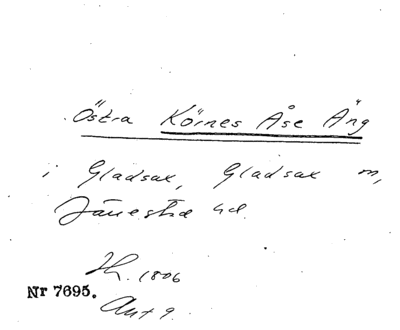 Östra Körnes Åse Äng
i Gladsax, Gladsax sn,
Järrestad hd.
Jh. 1806
Nr 7695.
Akt 9.